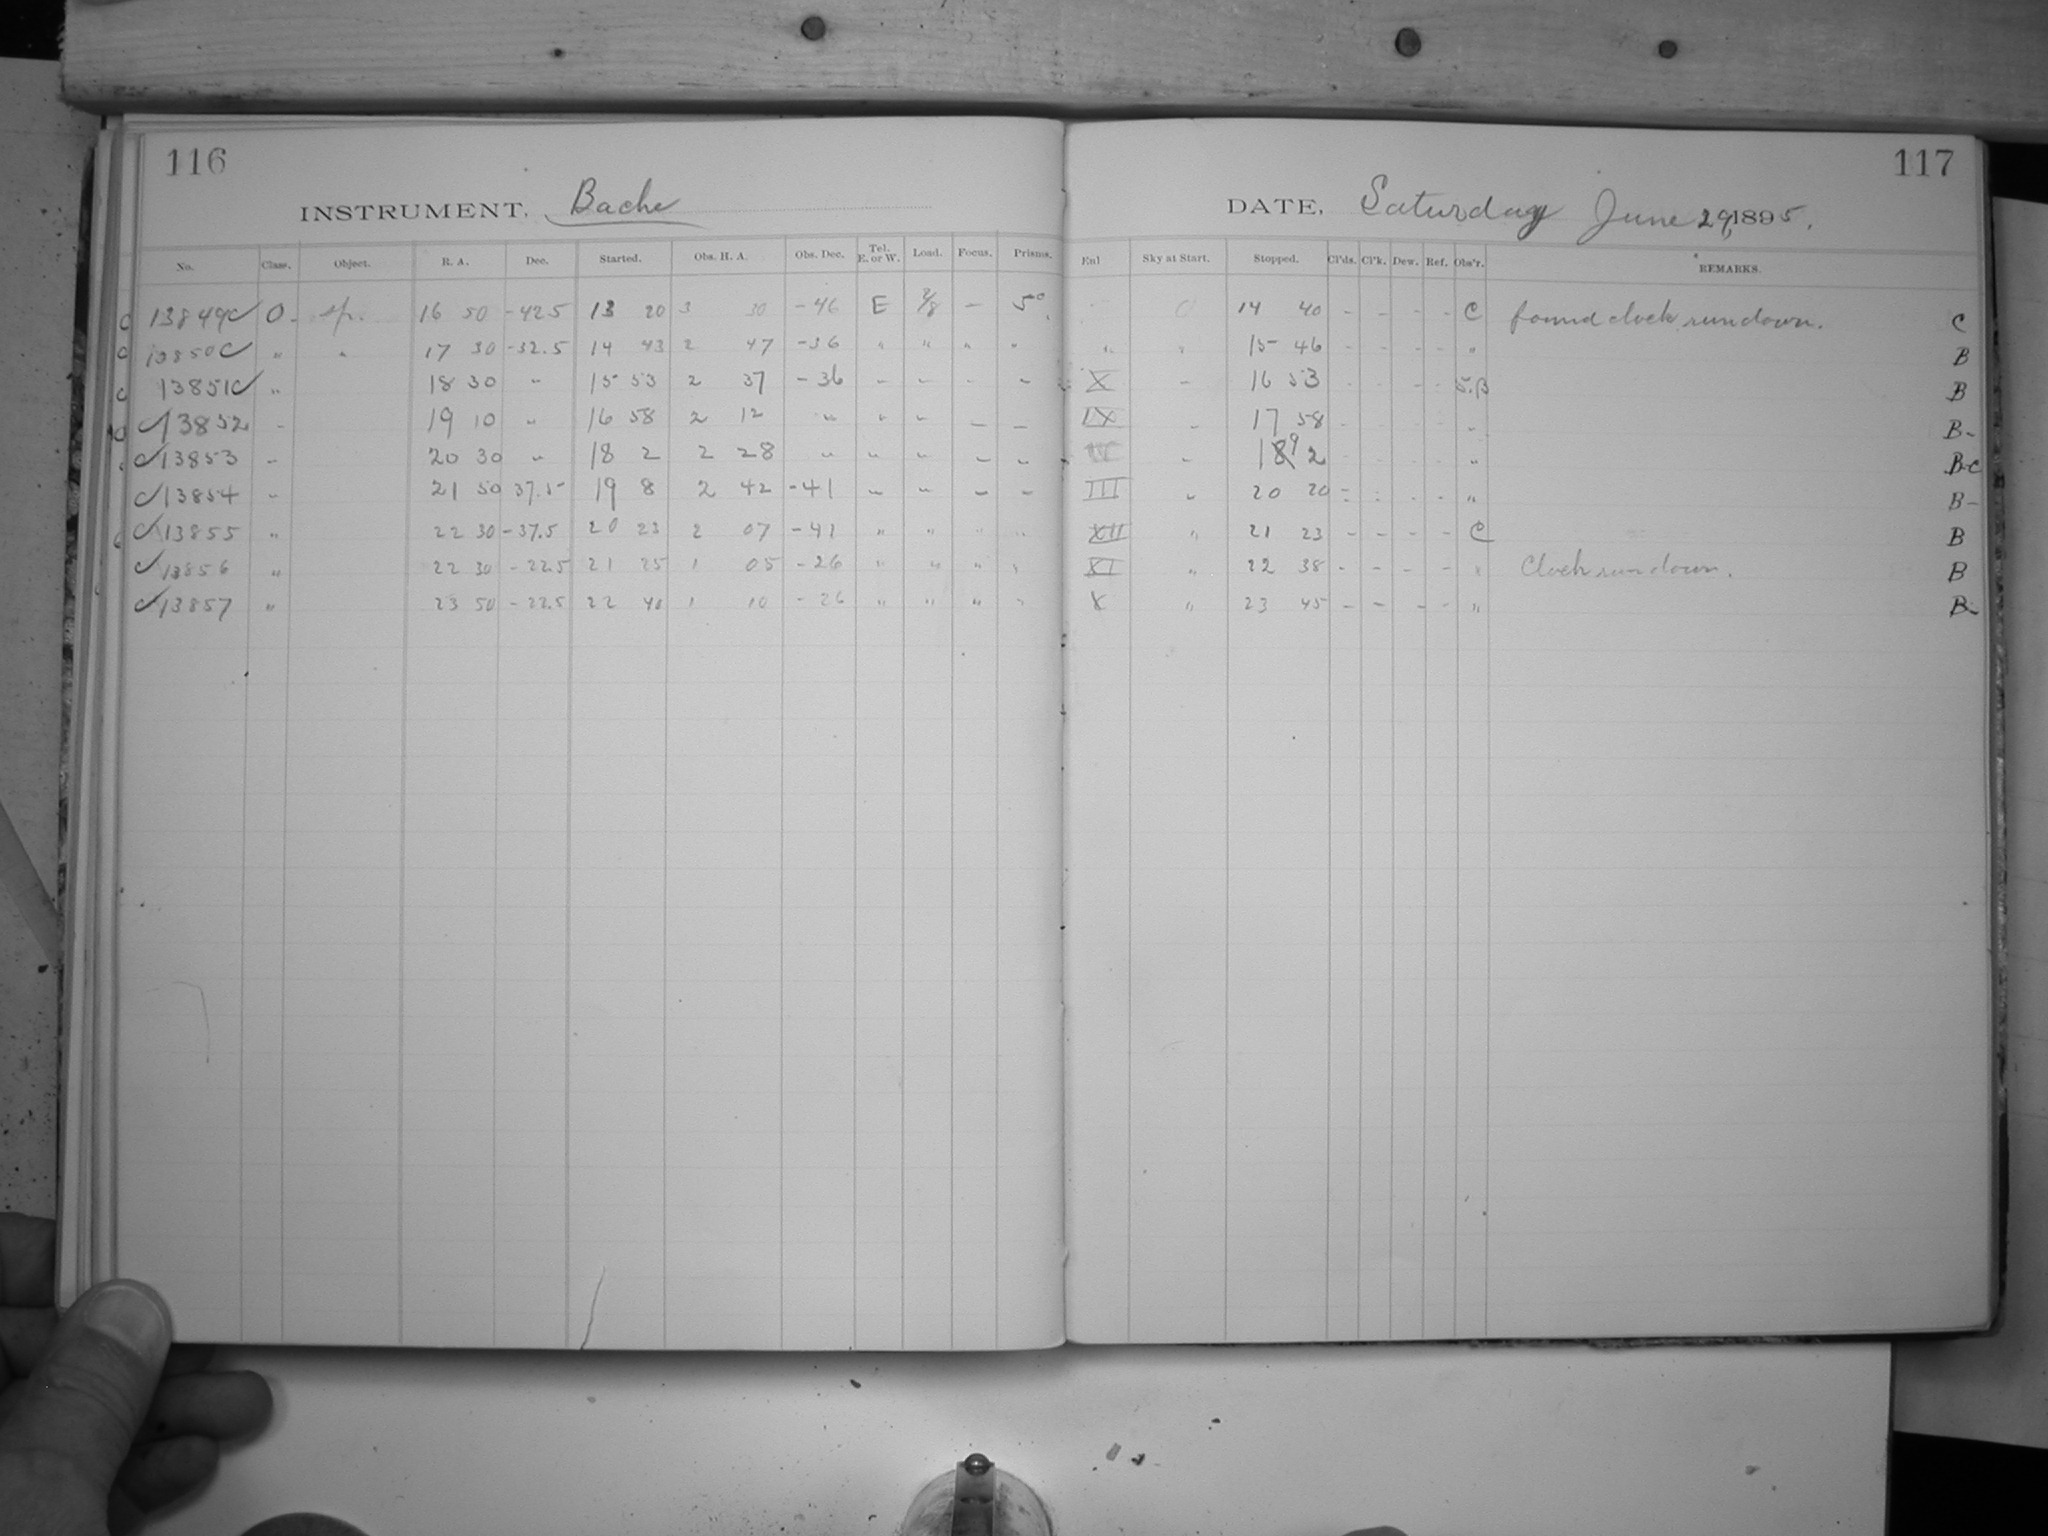 116
117
INSTRUMENT, Bache
DATE, Saturday June 29, 1895.
No. Class. Object. R. A. Dec. Started. Obs. H. A. Obs. Dec. Tel. E. or W. Load. Focus. Prisms. Enl Sky at Start. Stopped. Cl'ds. Cl'k. Dew. Ref. Obs'r. REMARKS.
C 13849C O - sp. 16 50 -42.5 13 20 3 30 -46 E 2/8 - 5° 14 40 - - - - C found clock run down. C
C 13850C " " 17 30 -32.5 14 43 2 47 -36 " " " " " " 15 46 - - - - " B
C 13851C " 18 30 " 15 53 2 37 -36 " " - " X " 16 53 - - - - S.B B
13852 " 19 10 " 16 58 2 12 " " " - - IX " 17 58 - - - - " B-
13853 " 20 30 " 18 2 2 28 " " " " " " 189 2 - - - - " B-C
13854 " 21 50 37.5 19 8 2 42 -41 " " " " III " 20 20 - - - - " B-
13855 " 22 30 -37.5 20 23 2 07 -41 " " " " XII " 21 23 - - - - C B
13856 " 22 30 -22.5 21 25 1 05 -26 " " " " XI " 22 38 - - - - " Clock run down. B
13857 " 23 50 -22.5 22 40 1 10 -26 " " " " X " 23 45 - - - - " B-